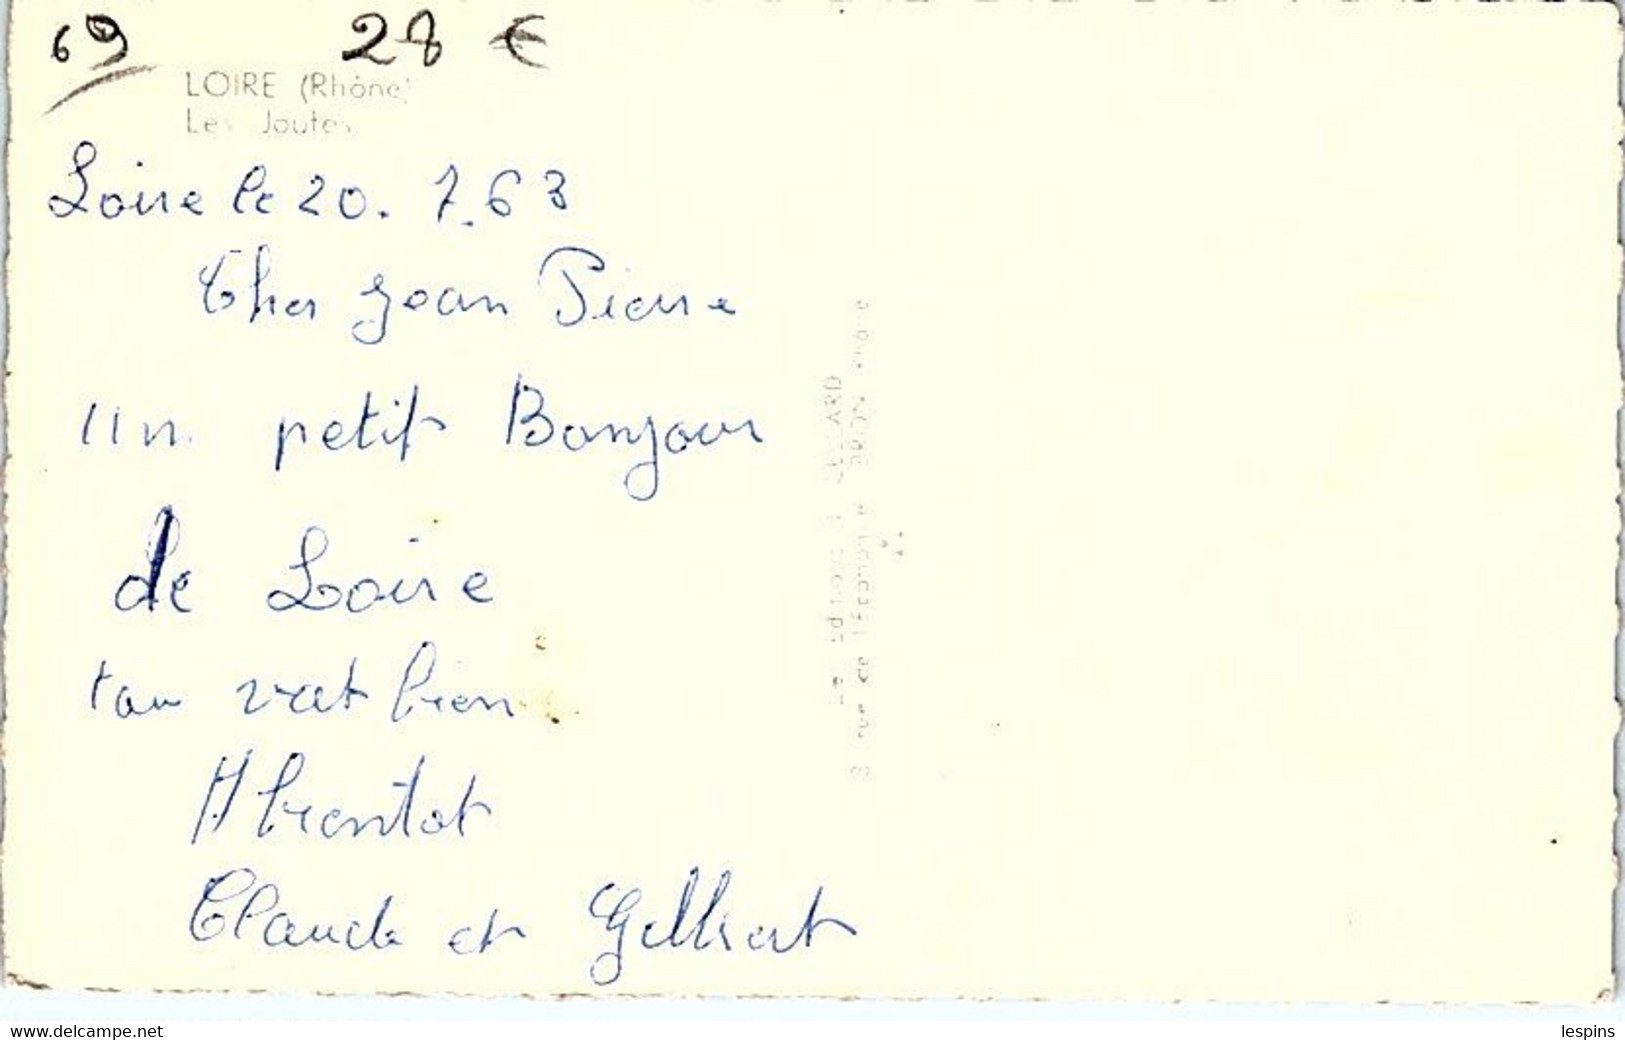 69 28 €
LOIRE (Rhône)
Les Joutes
Loire le 20.7.63
Cher Jean Pierre
un petit Bonjour
de Loire
tou vat bien
A bientot
Claude et Gilbert
rue de
www.delcampe.net
lespins